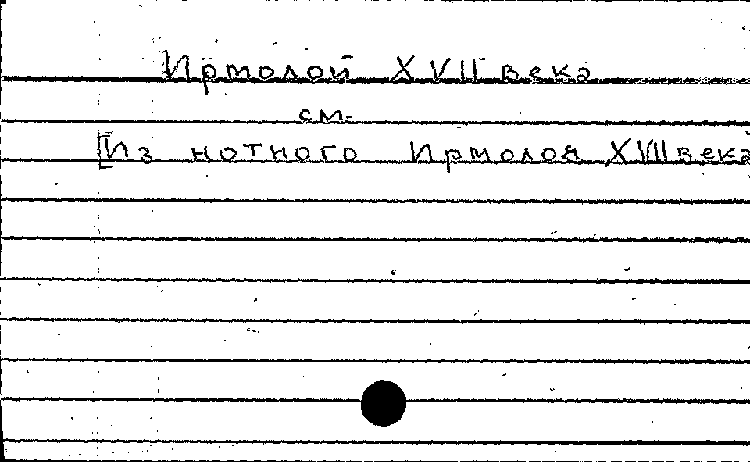 Ирмолой XVII века
см.
[Из нотного Ирмолоя XVII века